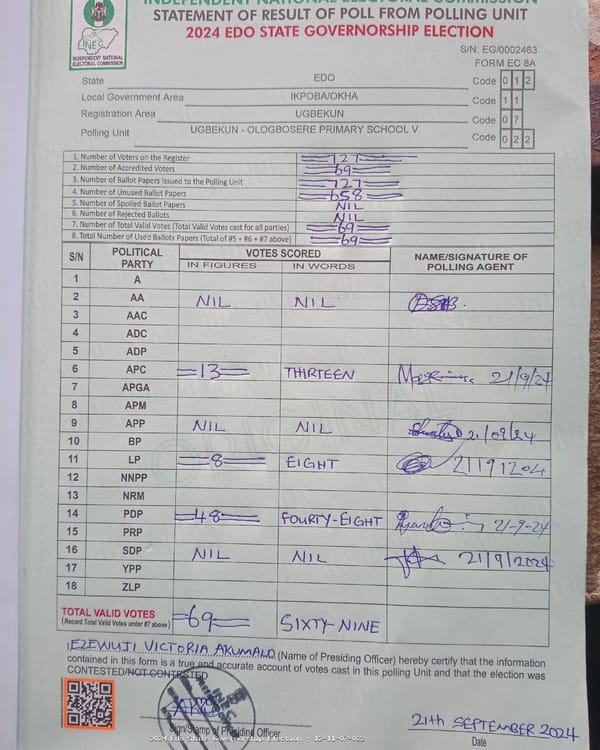 INDEPENDENT NATIONAL ELECTORAL COMMISSION
STATEMENT OF RESULT OF POLL FROM POLLING UNIT
2024 EDO STATE GOVERNORSHIP ELECTION
INEC
INDEPENDENT NATIONAL
ELECTORAL COMMISSION
S/N: EG/0002463
FORM EC 8A
State EDO Code 0 1 2
Local Government Area IKPOBA/OKHA Code 1 1
Registration Area UGBEKUN Code 0 7
Polling Unit UGBEKUN - OLOGBOSERE PRIMARY SCHOOL V Code 0 2 2
1. Number of Voters on the Register =727=
2. Number of Accredited Voters =69=
3. Number of Ballot Papers Issued to the Polling Unit =727=
4. Number of Unused Ballot Papers =658=
5. Number of Spoiled Ballot Papers NIL
6. Number of Rejected Ballots NIL
7. Number of Total Valid Votes (Total Valid Votes cast for all parties) =69=
8. Total Number of Used Ballots Papers (Total of #5 + #6 + #7 above) =69=
S/N POLITICAL PARTY VOTES SCORED NAME/SIGNATURE OF POLLING AGENT
IN FIGURES IN WORDS
1 A
2 AA NIL NIL
3 AAC
4 ADC
5 ADP
6 APC =13= THIRTEEN 21/9/24
7 APGA
8 APM
9 APP NIL NIL 21/09/24
10 BP
11 LP =8= EIGHT
12 NNPP
13 NRM
14 PDP =48= FOURTY-EIGHT 21-9-24
15 PRP
16 SDP NIL NIL 21/9/2024
17 YPP
18 ZLP
TOTAL VALID VOTES =69= SIXTY-NINE
(Record Total Valid Votes under #7 above)
I EZEWUJI VICTORIA AKUMALO (Name of Presiding Officer) hereby certify that the information
contained in this form is a true and accurate account of votes cast in this polling Unit and that the election was
CONTESTED/NOT CONTESTED
Sign/Stamp of Presiding Officer
21TH SEPTEMBER 2024
Date
2024 Edo State Governorship Election : 12-11-07-022